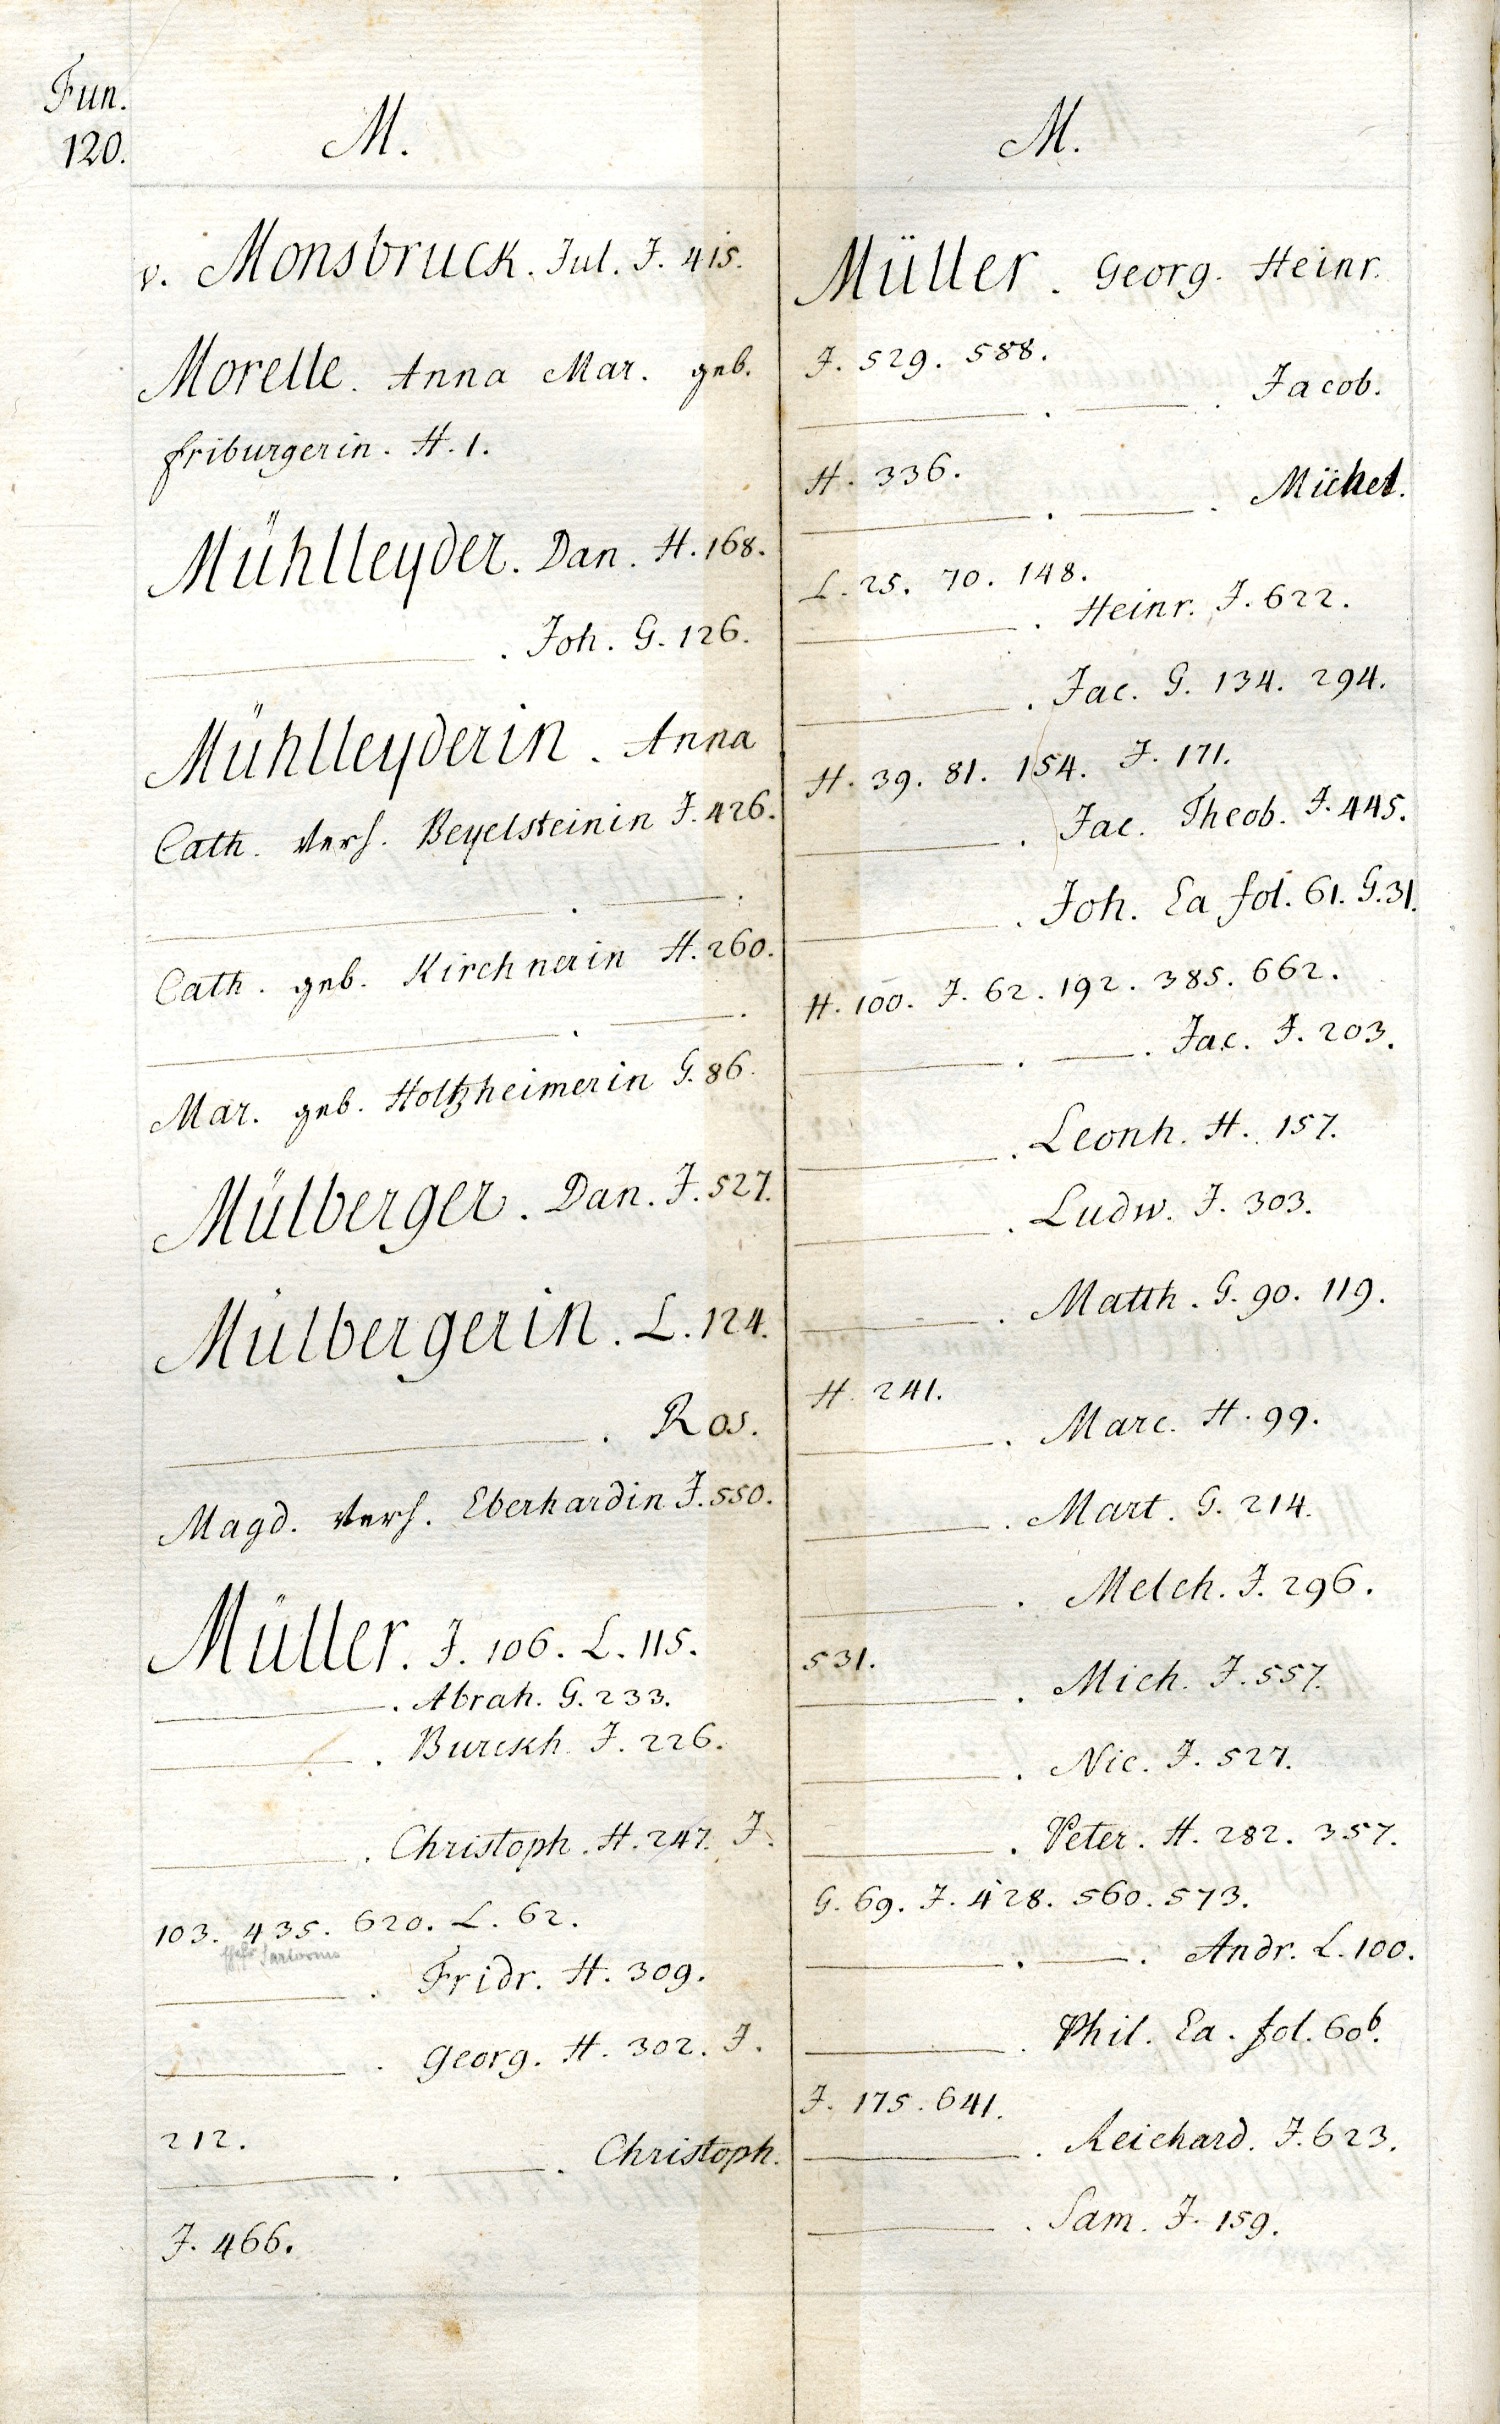 Fun.
120.
M.
v. Monsbruck. Jul. J. 415.
Morelle. Anna Mar. geb.
friburgerin. H. 1.
Mühlleyder. Dan. H. 168.
———. Joh. G. 126.
Mühlleyderin. Anna
Cath. verh. Beyelsteinin J. 426.
———. ———.
Cath. geb. Kirchnerin H. 260.
———. ———.
Mar. geb. Holtzheimerin G. 86.
Mülberger. Dan. J. 527.
Mülbergerin. L. 124.
———. Ros.
Magd. verh. Eberhardin J. 550.
Müller. J. 106. L. 115.
———. Abrah. G. 233.
———. Burckh. J. 226.
———. Christoph. H. 247. J.
103. 435. 620. L. 62.
———. Fridr. H. 309.
———. Georg. H. 302. J.
212.
———. ———. Christoph.
J. 466.
M.
Müller. Georg. Heinr.
J. 529. 588.
———. ———. Jacob.
H. 336.
———. ———. Michel.
L. 25. 70. 148.
———. Heinr. J. 622.
———. Jac. G. 134. 294.
H. 39. 81. 154. J. 171.
———. Jac. Theob. J. 445.
———. Joh. Ea fol. 61. G. 31.
H. 100. J. 62. 192. 385. 662.
———. ———. Jac. J. 203.
———. Leonh. H. 157.
———. Ludw. J. 303.
———. Matth. G. 90. 119.
H. 241.
———. Marc. H. 99.
———. Mart. G. 214.
———. Melch. J. 296.
531.
———. Mich. J. 557.
———. Nic. J. 527.
———. Peter. H. 282. 357.
G. 69. J. 428. 560. 573.
———. ———. Andr. L. 100.
———. Phil. Ea. fol. 60b.
J. 175. 641.
———. Reichard. J. 623.
———. Sam. J. 159.